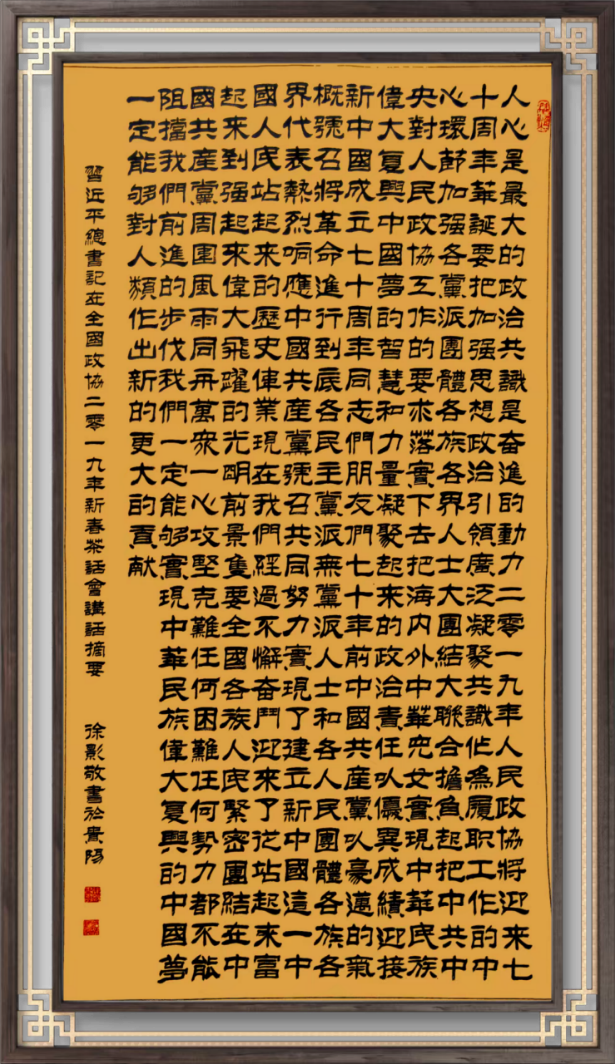 人心是最大的政治共識是奮進的動力二零一九年人民政協將迎來七
十周年華誕要把加强思想政治引領廣泛凝聚共識作為履职工作的中
心環節加强各黨派團體各族各界人士大團結大聯合擔負起把中共中
央對人民政協工作的要求落實下去把海内外中華兒女實現中華民族
偉大复興中國夢的智慧和力量凝聚起來的政治責任以優異成績迎接
新中國成立七十周年同志們朋友們七十年前中國共産黨以豪邁的氣
概號召將革命進行到底各民主黨派無黨派人士和各人民團體各族各
界代表熱烈响應中國共産黨號召共同努力實現了建立新中國這一中
國人民站起來的歷史偉業現在我們經過不懈奮鬥迎來了從站起來富
起來到强起來偉大飛躍的光明前景隻要全國各族人民緊密團結在中
國共産黨周圍風雨同舟萬衆一心攻堅克難任何困難任何勢力都不能
阻擋我們前進的步伐我們一定能够實現中華民族偉大复興的中國夢
一定能够對人類作出新的更大的貢献
習近平總書記在全國政協二零一九年新春茶話會講話摘要 徐影敬書於貴陽